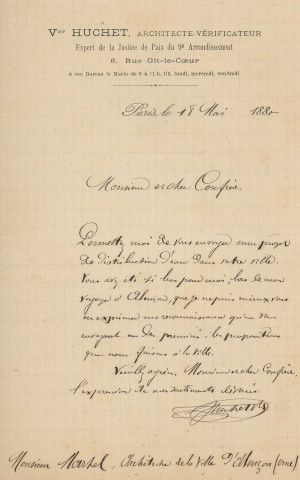 Vor HUCHET, ARCHITECTE-VÉRIFICATEUR
Expert de la Justice de Paix du 9e Arrondissement
6, Rue Gît-le-Cœur
à son Bureau le Matin de 8 à 11 h. 1/2, lundi, mercredi, vendredi
Paris, le 18 Mai 1880
Monsieur et cher Confrère,
Permettez moi de vous envoyer mon projet
de distribution d'eau dans votre ville.
Vous avez été si bon pour moi, lors de mon
voyage à Alençon, que je ne puis mieux vous
en exprimer ma reconnaissance qu'en vous
envoyant un des premiers, les propositions
que nous faisons à la Ville.
Veuillez agréer, Monsieur et cher Confrère,
l'expression de mes sentiments dévoués
Huchet Vor
Monsieur Martel, Architecte de la Ville d'Alençon (Orne)